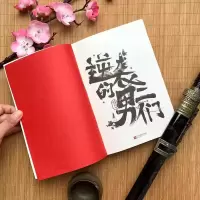 逆袭
的男二们